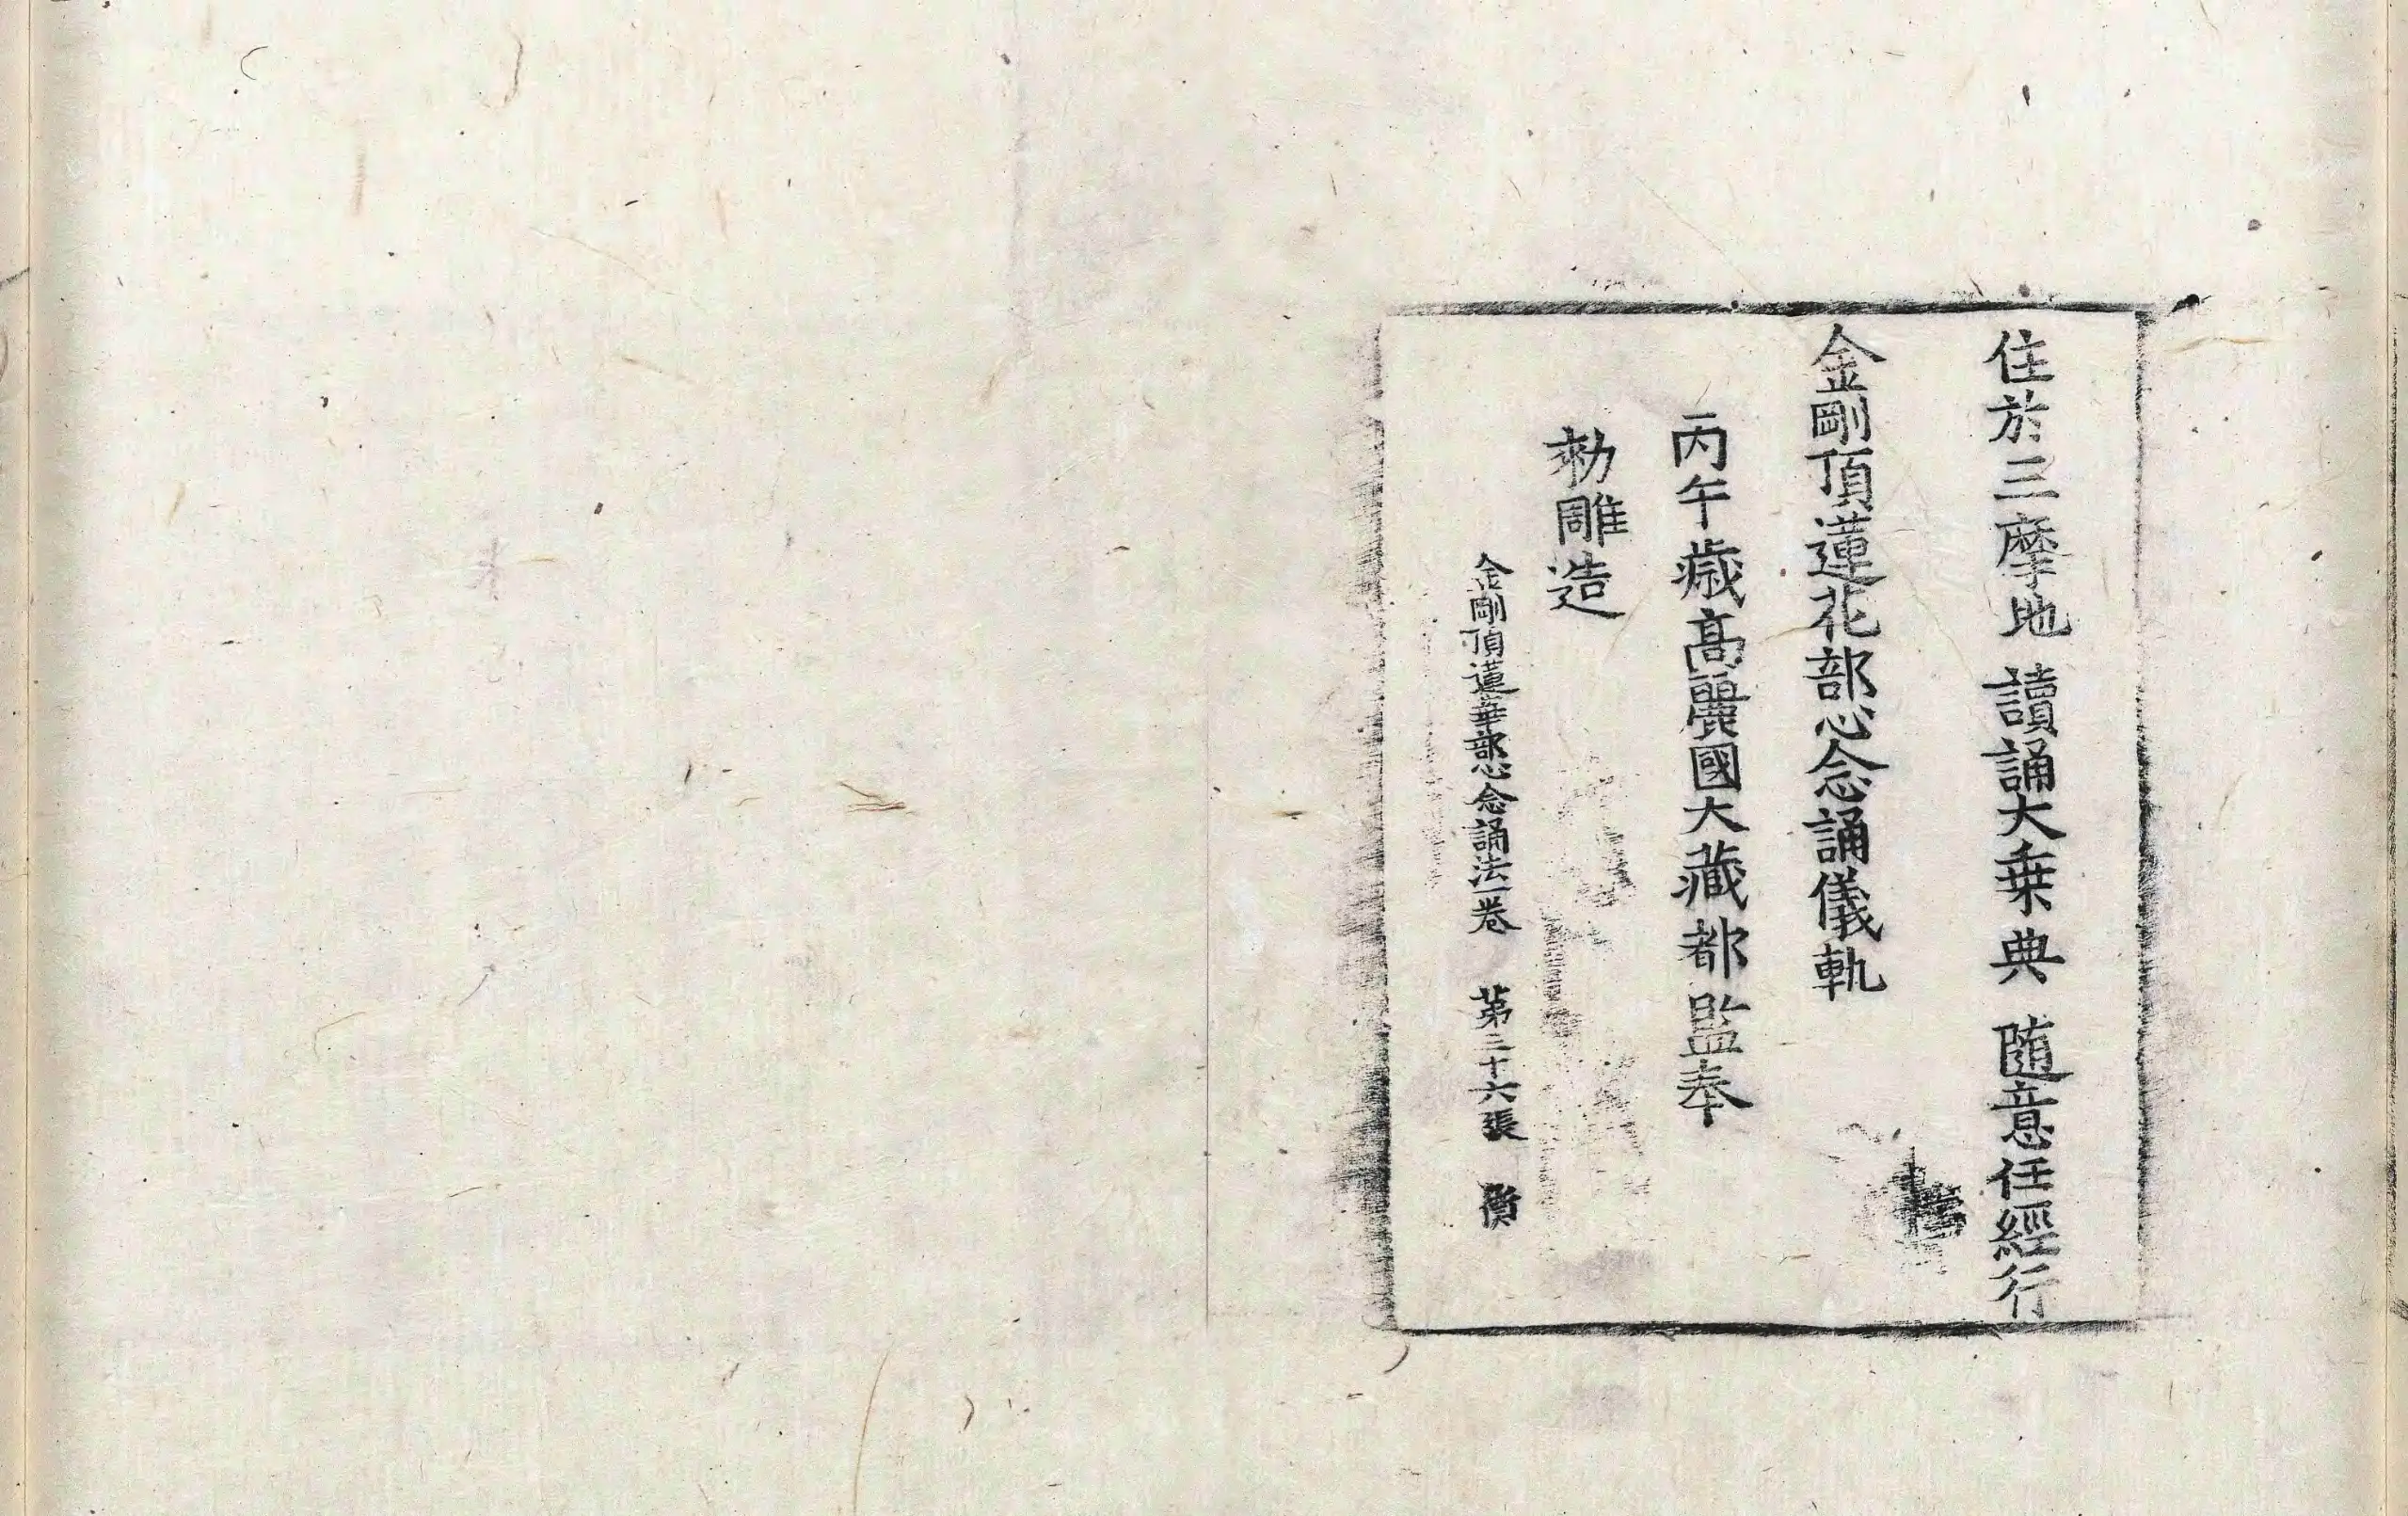 住於三摩地 讀誦大乗典 随意任經行
金剛頂蓮花部心念誦儀軌
丙午歳髙麗國大藏都監奉
勑雕造
金剛頂蓮華部心念誦法一卷 第三十六張